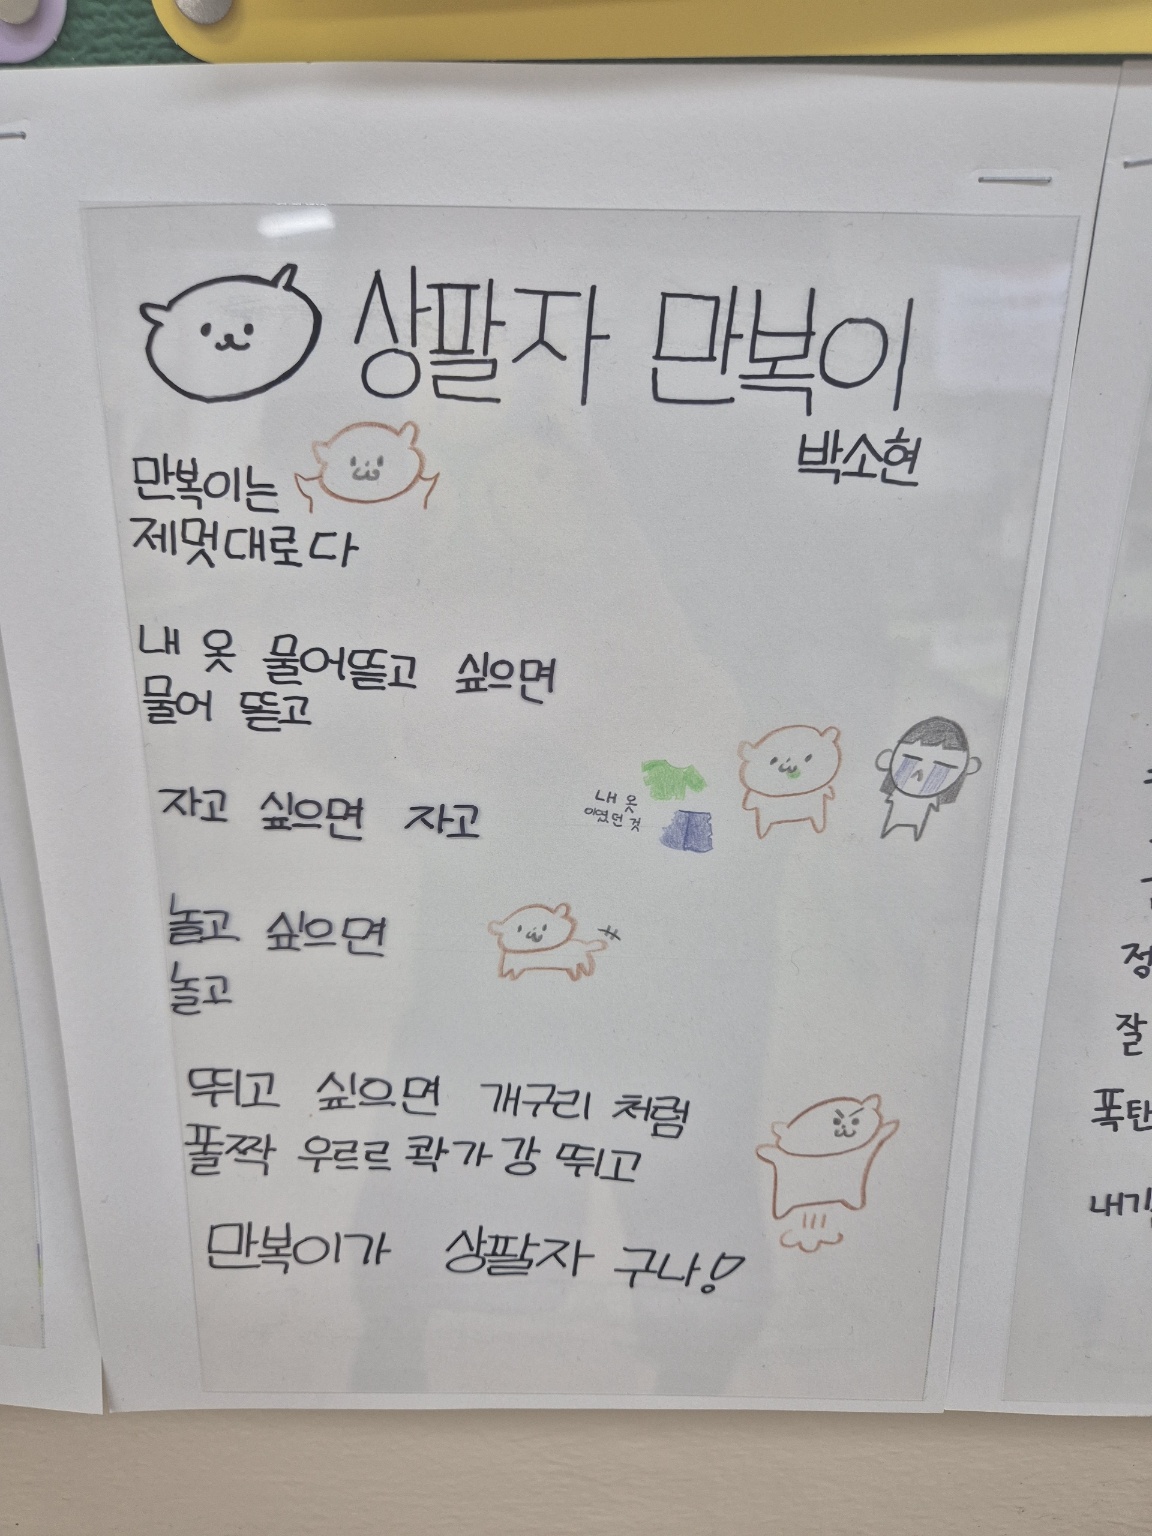 상팔자 만복이
박소현
만복이는
제멋대로다
내 옷 물어뜯고 싶으면
물어 뜯고
자고 싶으면 자고
내 옷
이였던 것
놀고 싶으면
놀고
뛰고 싶으면 개구리 처럼
폴짝 우르르 콱가강 뛰고
만복이가 상팔자 구나!
정
잘
폭탄